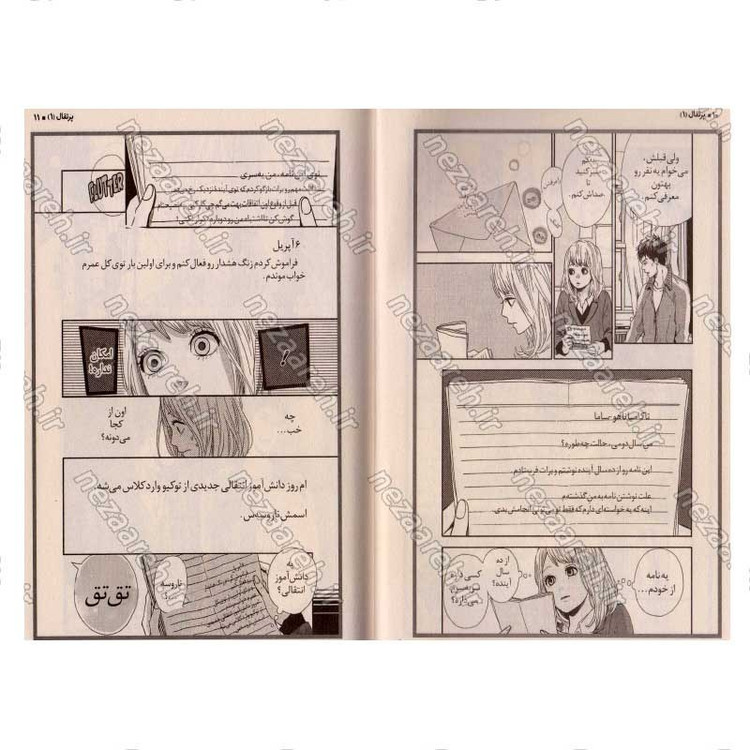 ۱۰ ■ پرتقال (۱)
ولی قبلش،
می‌خوام یه نفر رو
بهتون
معرفی کنم.
یکم
صبر کنید
تا
صداش کنم.
ناکامیا ناهو-ساما
من سال دومی، حالت چه‌طوره؟
این نامه رو از ده سال آینده نوشتم و برات فرستادم.
علت نوشتن نامه به من گذشته‌م
اینه که یه خواسته‌ای دارم که فقط تو می‌تونی انجامش بدی.
یه نامه
از خودم...
از ده
سال
آینده؟
کسی داره
می‌ذاره؟
پرتقال (۱) ■ ۱۱
توی این نامه، من یه‌سری
FLUTTER
۶ آپریل
فراموش کردم زنگ هشدار رو فعال کنم و برای اولین بار توی کل عمرم
خواب موندم.
!
امکان
نداره!
چه
خب...
اون از
کجا
می‌دونه؟
ام روز دانش‌آموز انتقالی جدیدی از توکیو وارد کلاس می‌شه.
اسمش ناروسه‌س.
یه
دانش‌آموز
انتقالی؟
ناروسه
تق تق
nezaareh.ir